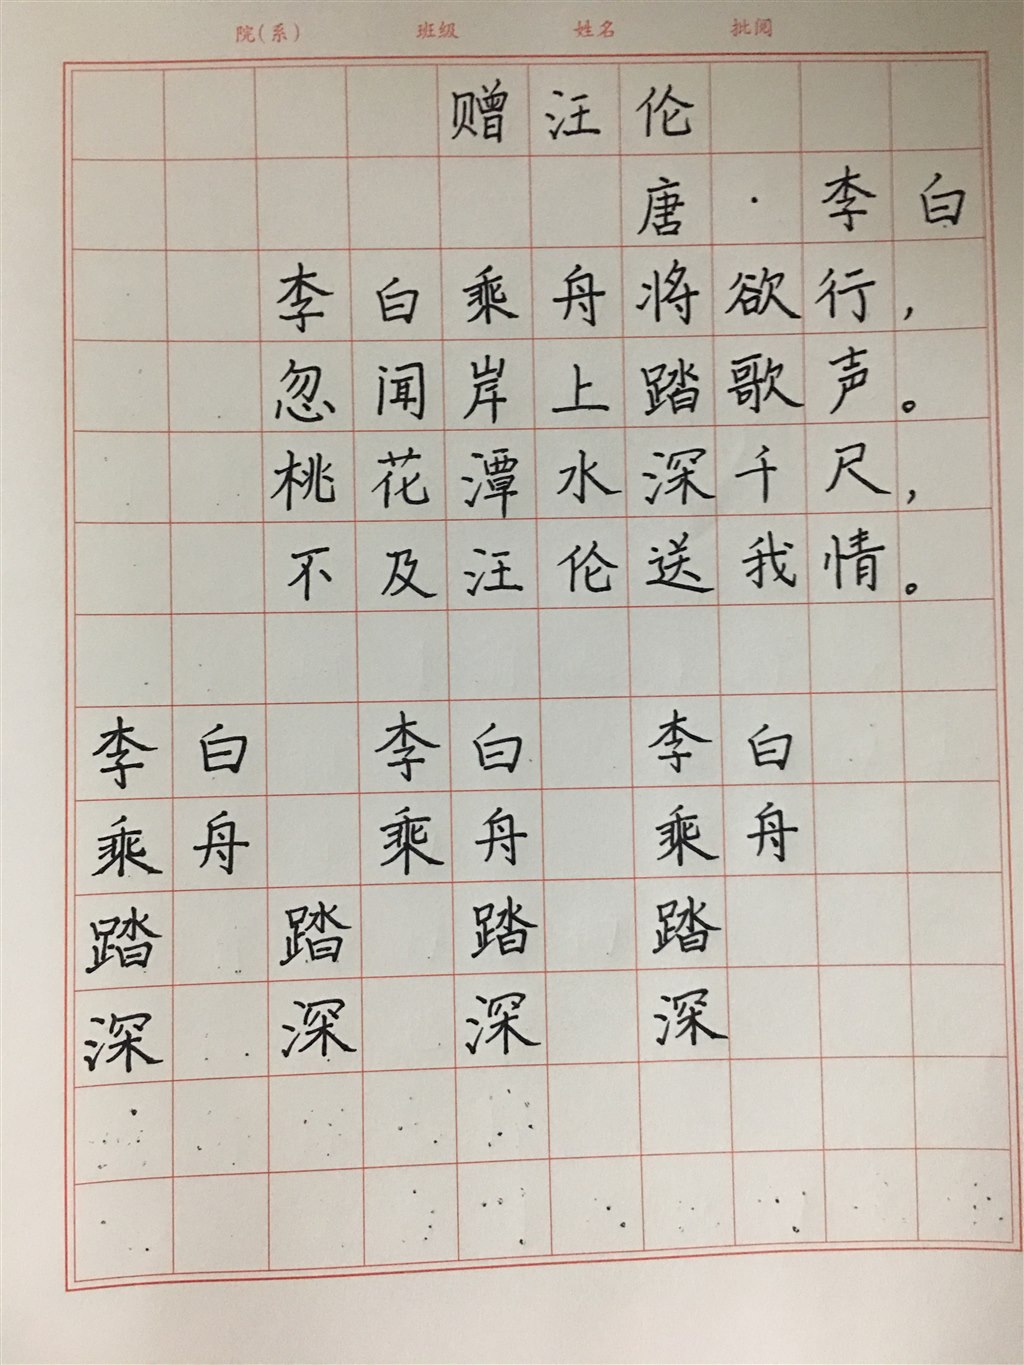 院(系) 班级 姓名 批阅
赠汪伦
唐·李白
李白乘舟将欲行，
忽闻岸上踏歌声。
桃花潭水深千尺，
不及汪伦送我情。
李白 李白 李白
乘舟 乘舟 乘舟
踏 踏 踏 踏
深 深 深 深